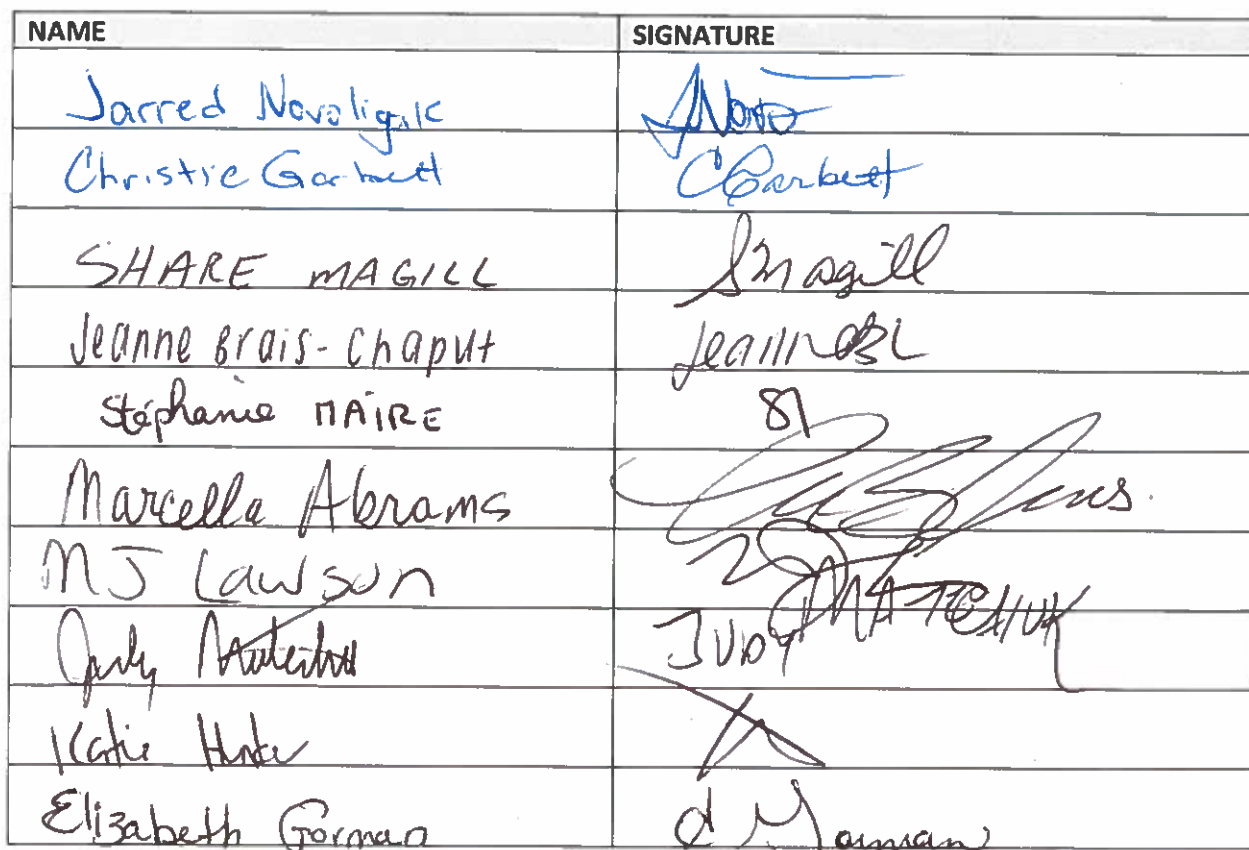 NAME SIGNATURE
Jarred Novaligak
Christie Garbett CGarbett
SHARE MAGILL SMagill
Jeanne Brais-Chaput
Stéphanie MAIRE
Marcella Abrams
MJ Lawson
Judy JUDY MATECHUK
Katie Hunter
Elizabeth Gorman E Gorman